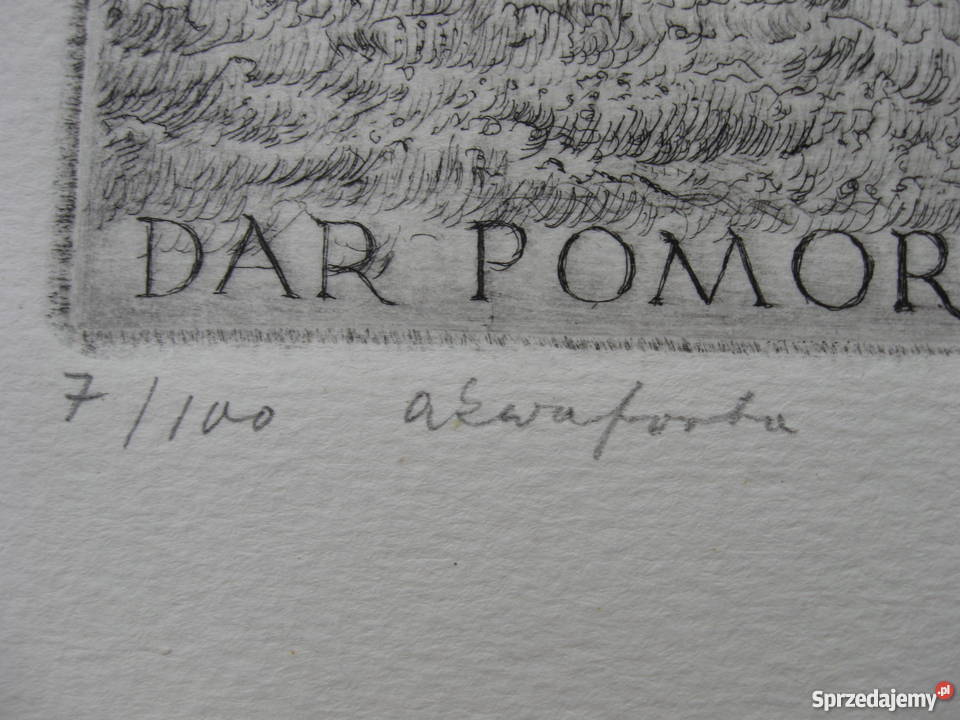 DAR POMOR
7/100 akwaforta
Sprzedajemy.pl